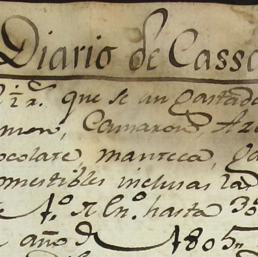 Diario de Cassa
que se an gastado
Camaron,
ocolate, manteca,
omestibles inclusas las
hasta 30
año d 1805